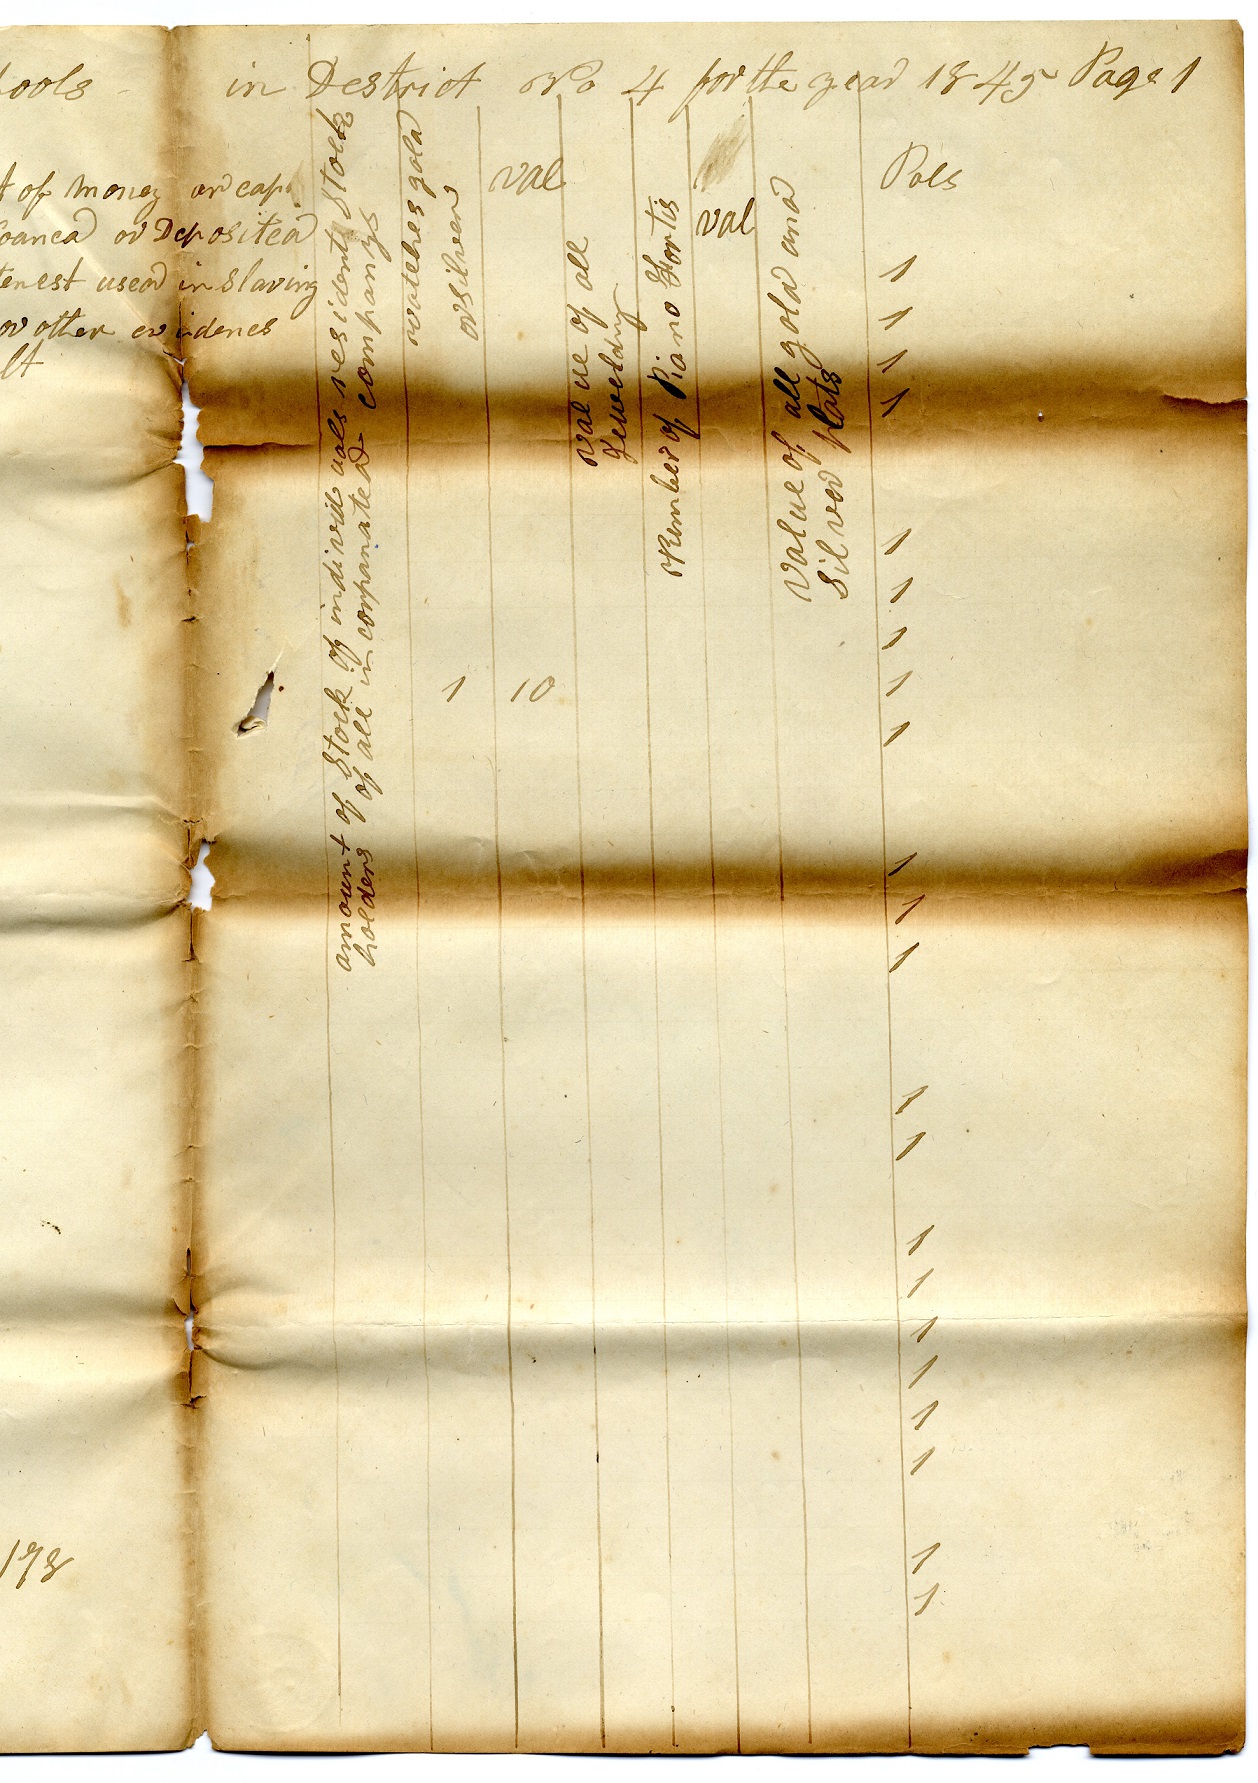 ools in Destrict No 4 for the year 1845 Page 1
t of money or cap
oaned or Deposited
terest used in slaving
or other evidenes
lt
amount of Stock of individuals resident Stock
holders of all in corporated companys
watches gold
or silver
val
value of all
Jewelry
Number of Piano Fortis
val
Value of all gold and
Silver plats
Poles
1
1
1
1
1
1
1
1 10 1
1
1
1
1
1
1
1
1
1
1
1
1
178 1
1